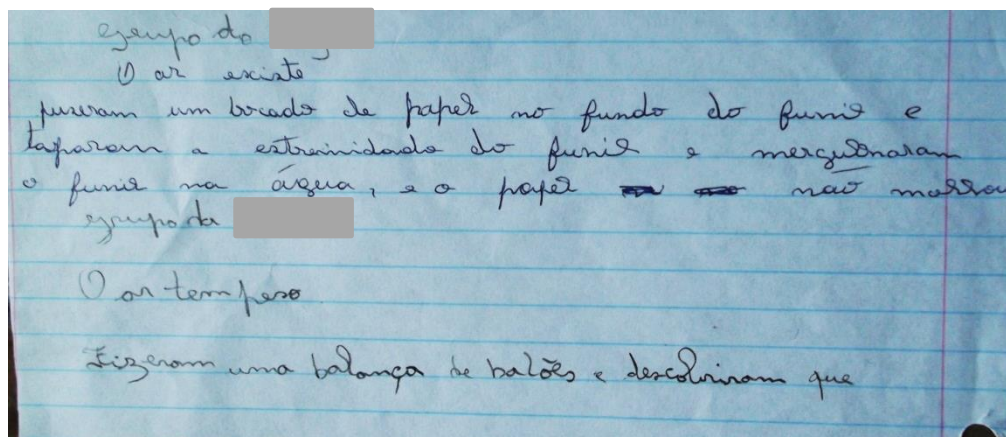 grupo do
O ar existe
puseram um bocado de papel no fundo do funil e
taparam a estremidade do funil e mergulharam
o funil na água, e o papel não molhou
grupo da
O ar tem peso
Fizeram uma balança de balões e descobriram que